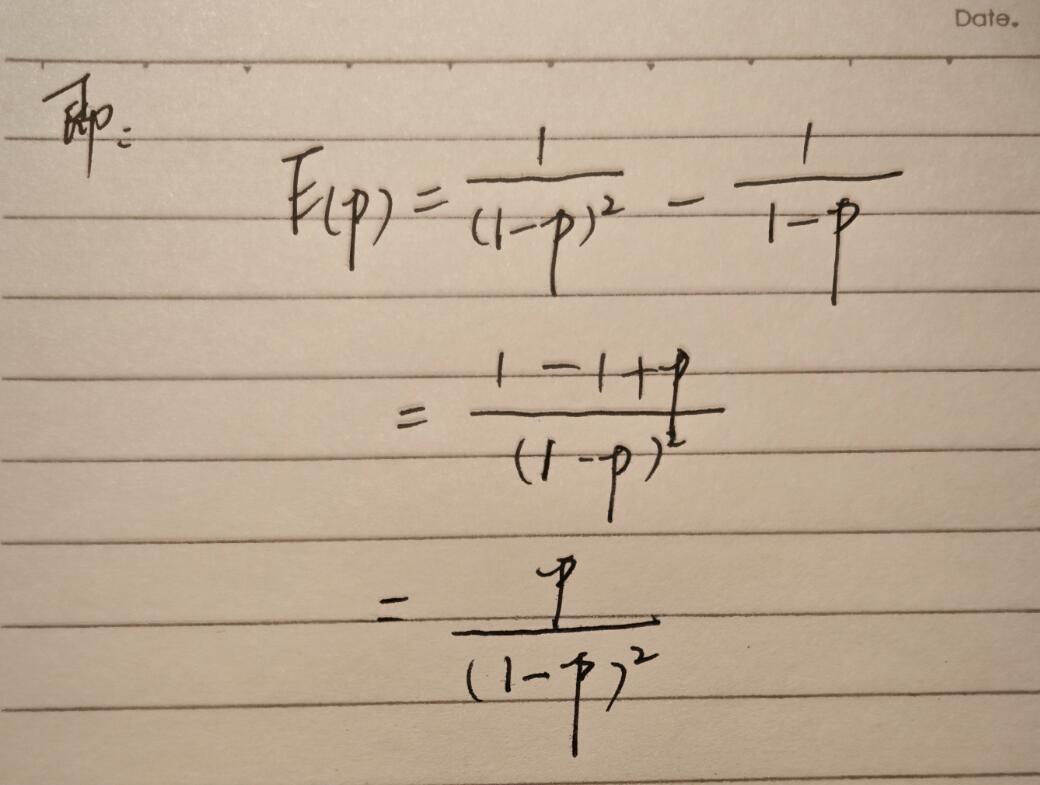 Date.
即:
E(p) = \frac{1}{(1-p)^2} - \frac{1}{1-p}
= \frac{1-1+p}{(1-p)^2}
= \frac{p}{(1-p)^2}